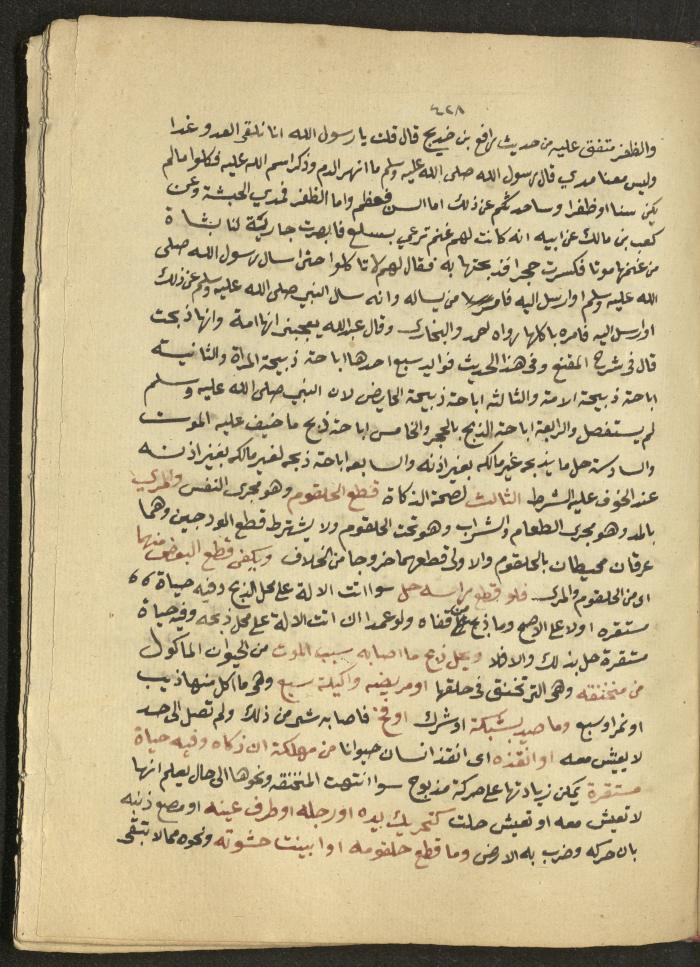 ٤٢٨
والظفر متفق عليه من حديث رافع بن خديج قال قلت يا رسول الله انا نلقى العدو غدا
وليس معنا مدي قال رسول الله صلى الله عليه وسلم ما انهر الدم وذكر اسم الله عليه فكلوا مالم
يكن سنا او ظفرا وساحدثكم عن ذلك اما السن فعظم واما الظفر فمدي الحبشة وعن
كعب بن مالك عن ابيه انه كانت لهم غنم ترعي بسلع فابصرت جارية لنا بشاة
من غنمها موتا فكسرت حجرا فذبحتها به فقال لهم لا تاكلوا حتى اسال رسول الله صلى
الله عليه وسلم او ارسل اليه من يساله وانه سال النبي صلى الله عليه وسلم عن ذلك
او ارسل اليه فامره باكلها رواه احمد والبخاري وقال عبد الله يعجبني انها امة وانها ذبحت
قال في شرح المقنع وفي هذا الحديث فوايد سبع احدها اباحة ذبيحة المراة والثانية
اباحة ذبيحة الامة والثالثه اباحة ذبيحة الحايض لان النبي صلى الله عليه وسلم
لم يستفصل والرابعة اباحة الذبح بالحجر والخامس اباحة ذبح ما خيف عليه الموت
والسادسة حل ما يذبحه غير مالكه بغير اذنه والسابعه اباحة ذبحه لغير مالكه بغير اذنه
عند الخوف عليه الشرط الثالث لصحة الذكاة قطع الحلقوم وهو مجرى النفس والمري
بالمد وهو مجرى الطعام والشراب وهو تحت الحلقوم ولا يشترط قطع الودجين وهما
عرقان محيطان بالحلقوم والاولى قطعهما خروجا من الخلاف ويكفي قطع البعض منهما
او من الحلقوم والمري فلو قطع راسه حل سوا اتت الالة على محل الذبح وفيه حياة
مستقره اولا على الاصح وما ذبح من قفاه ولو عمدا ان اتت الالة على محل ذبحه وفيه حياة
مستقرة حل بذلك والا فلا ويحل ذبح ما اصابه سبب الموت من الحيوان الماكول
من منخنقه وهي التي تخنق في حلقها او مريضه واكيلة سبع وهي ما اكل منها ذيب
او نمر او سبع وما صيد بشبكة او شرك او فخ فاصابه شي من ذلك ولم تصل الى حد
لا يعيش معه او انقذه اي انقذ انسان حيوانا من مهلكة ان ذكاه وفيه حياة
مستقرة يمكن زيادتها على حركة مذبوح سوا انتهت المنخنقه ونحوها الى حال يعلم انها
لا تعيش معه او تعيش حلت كتحريك يده او رجله او طرف عينه او مصع ذنبه
بان حركه وضرب به الارض وما قطع حلقومه او ابينت حشوته ونحوه مما لا تبقى